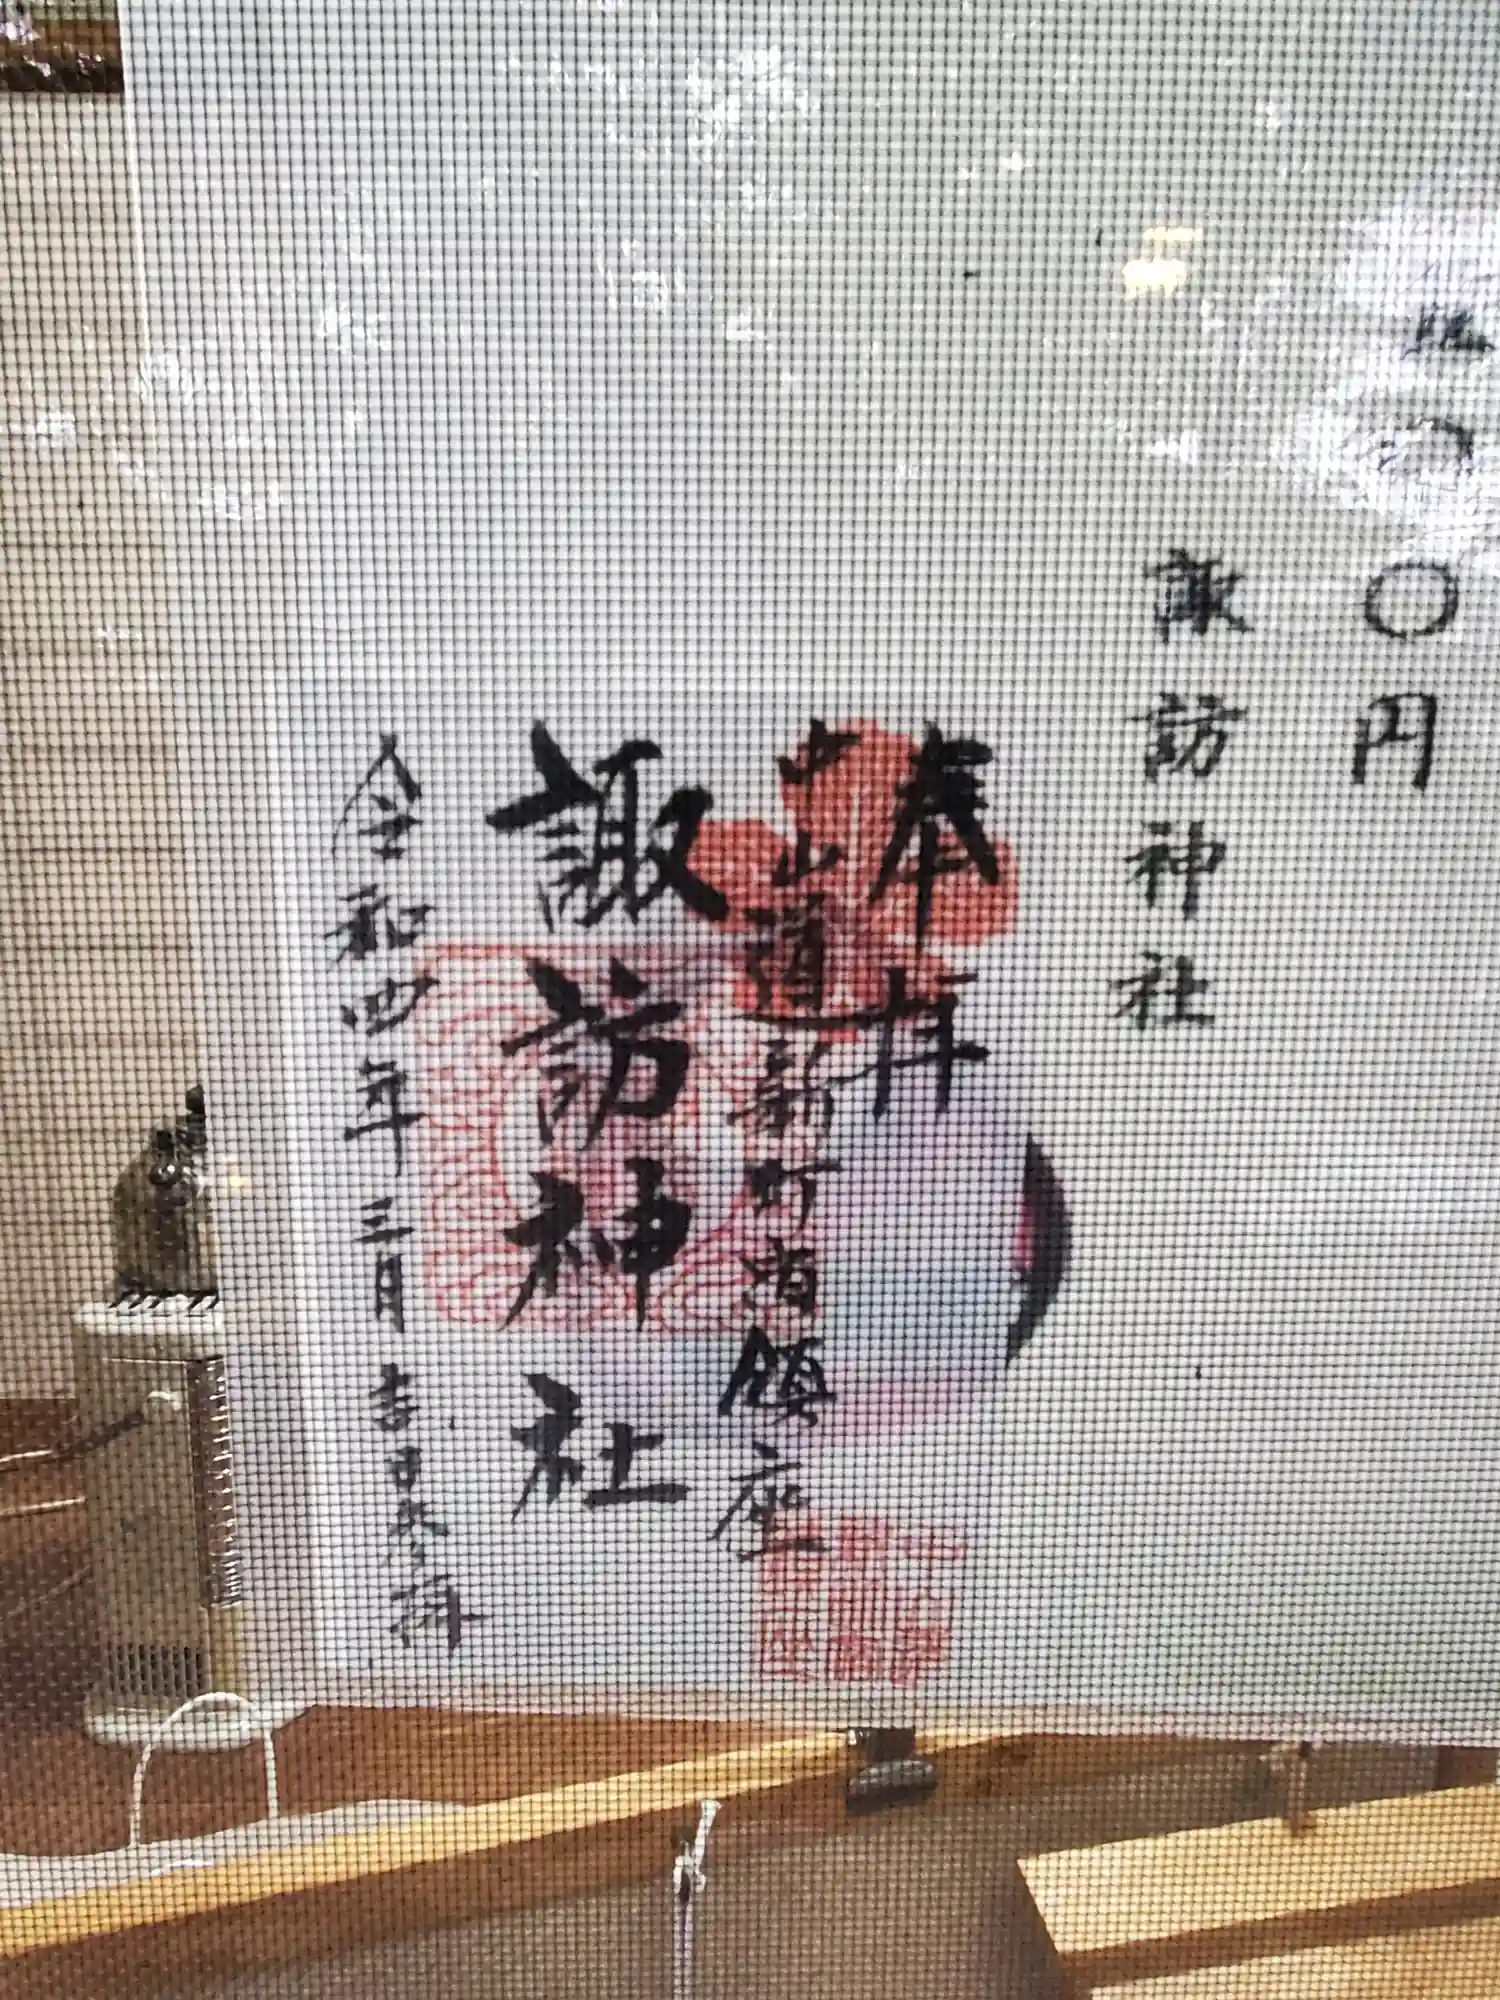 〇〇円
諏訪神社
奉拝
中山道新町宿鎮座
諏訪神社
令和四年三月吉日参拝